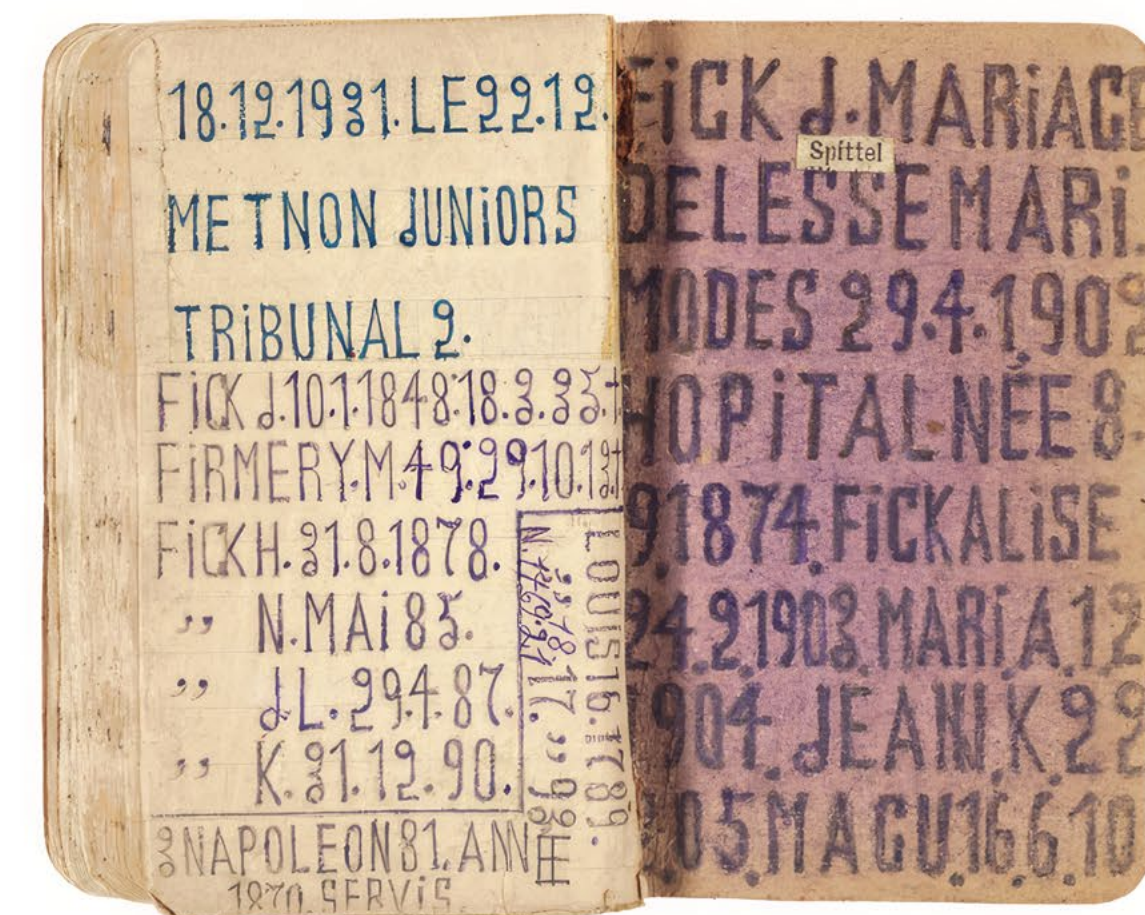 18.12.1931.LE22.12.
METNON JUNiORS
TRiBUNAL 2.
FiCK J.10.1.1848.18.3.35.†
FiRMERY.M.49.29.10.13†
FiCKH.31.8.1878.
,, N.MAi 85.
,, JL.29.4.87.
,, K.31.12.90.
LOUiS16.1789.
17. ,, 93
NAPOLEON81.ANNÉE
1870.SERViS
FiCK J.MARiAGE
Spittel
DELESSEMARi
MODES 29.4.1902
HOPiTAL.NÉE 8.
9.1874.FiCKALiSE
24.2.1903.MARi.A.12
1904.JEANN.K.22
.05.MAGU.16.6.10